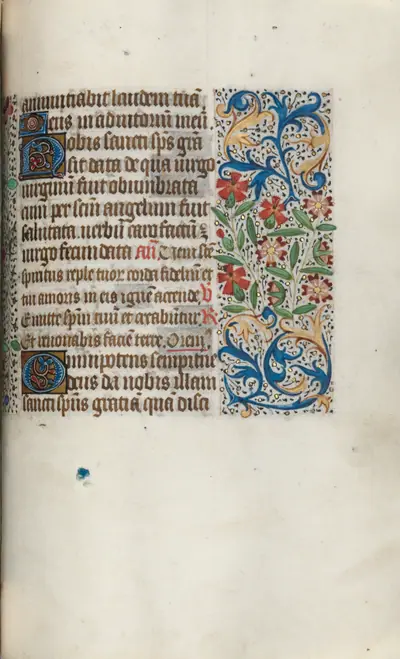 annuntiabit laudem tuā
eus in adiutoriū meū
Nobis sancti sp̄s gra
sit data de qua uirgo
uirginū fuit obumbrata
cum per scm̄ angelum fuit
salutata uerbū caro factū ē
uirgo fecundata Añ Veni sc̄e
spiritus reple tuor corda fidelium et
tui amoris in eis ignē accende V
Emitte sp̄m tuū et creabūtur R
Et renouabis faciē terre. Orem̄
Omnipotens sempiterne
deus da nobis illam
sancti sp̄us gratiā quā disci